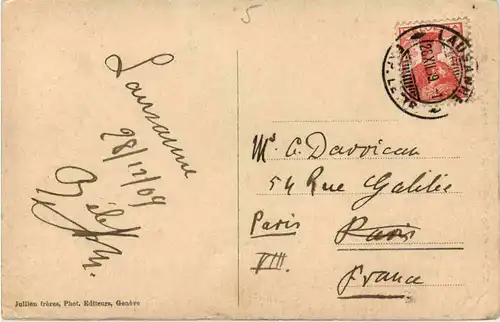 5
LAUSANNE
Lausanne
28/12/09
Mr. C. Davvican
54 Rue Galilée
Paris
Paris
VIII.
France
Jullien frères, Phot. Editeurs, Genève